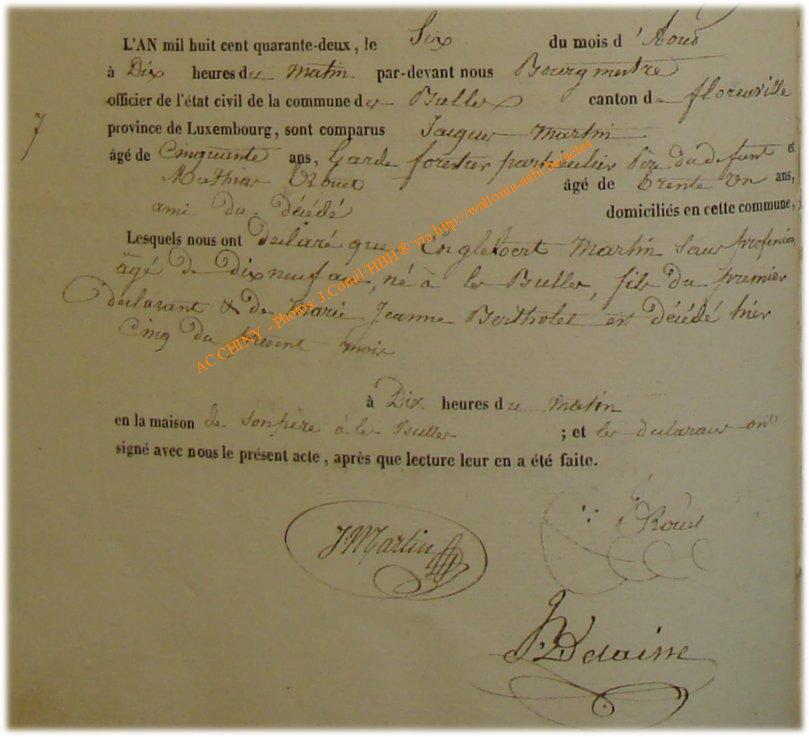 L'AN mil huit cent quarante-deux, le Six du mois d'Aout
à Dix heures du matin par-devant nous Bourgmestre
officier de l'état civil de la commune des Bulles canton de florenville
7
province de Luxembourg, sont comparus Jacques Martin
âgé de Cinquante ans, Garde forestier particulier Père du défunt et
Mathias Rouet âgé de Trente un ans,
ami du décédé domiciliés en cette commune,
Lesquels nous ont declaré que Englebert Martin sans profession
âgé de Dixneuf ans, né à les Bulles, fils du premier
declarant & de Marie Jeanne Bertholet est décédé hier
Cinq du present mois
AC CHINY - Photos J.Cornil/HBH ® via http://wallonia-asbl
à Dix heures du matin
en la maison de son père à les Bulles ; et les declarans ont
signé avec nous le présent acte, après que lecture leur en a été faite.
J Martin
Rouet